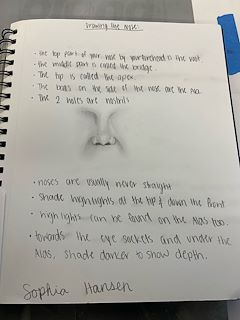 Drawing the Nose:
· the top part of your nose by your forehead is the root.
· the middle part is called the bridge.
· The tip is called the apex.
· The balls on the side of the nose are the Ala.
· The 2 holes are nostrils
· noses are usually never straight
· Shade highlights at the tip & down the front
· highlights can be found on the Alas too.
· towards the eye sockets and under the
Alas, shade darker to show depth.
Sophia Hansen